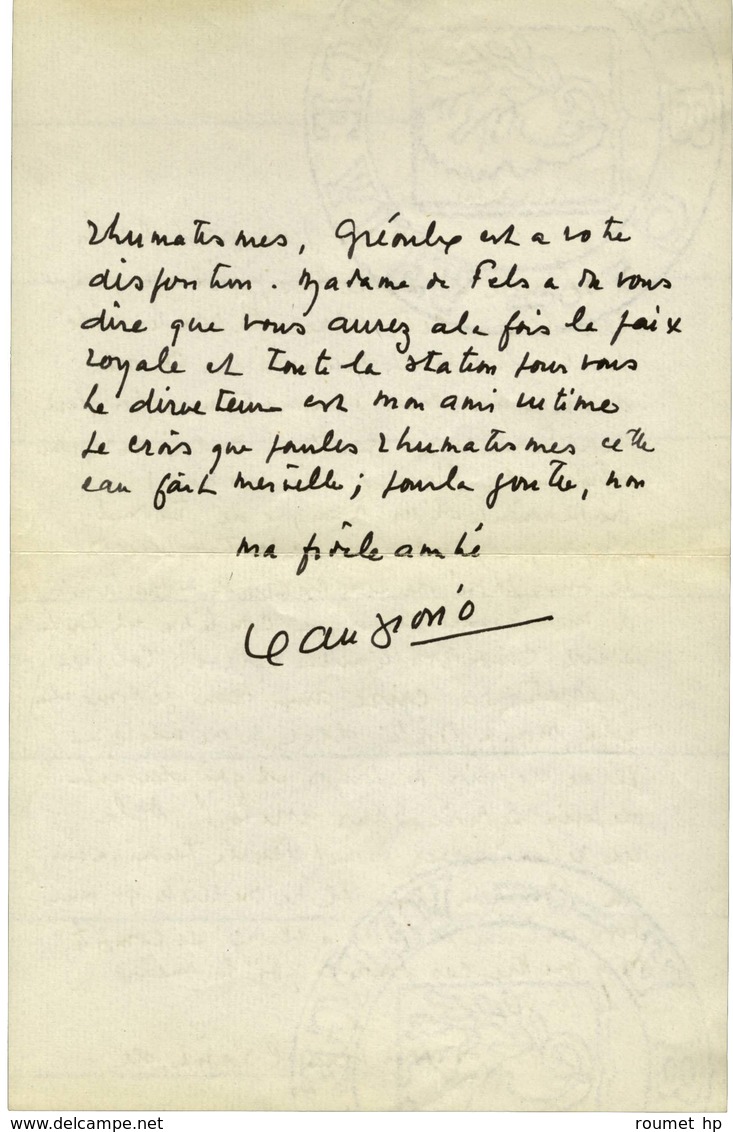 rhumatismes, Gréoulx est a votre
disposition. Madame de Fels a du vous
dire que vous aurez a la fois la paix
royale et toute la station pour vous
Le directeur est mon ami intime
Je crois que pour les rhumatismes cette
eau fait merveille ; pour la goutte, non
ma fidèle amitié
Jean Giono
www.delcampe.net
roumet hp